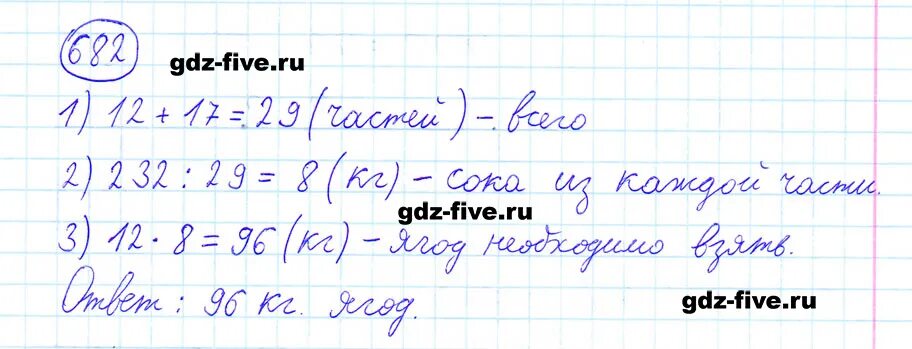 682
gdz-five.ru
1) 12 + 17 = 29 (частей) - всего
2) 232 : 29 = 8 (кг) - сока из каждой части.
gdz-five.ru
3) 12 · 8 = 96 (кг) - ягод необходимо взять.
Ответ : 96 кг. ягод.
gdz-five.ru